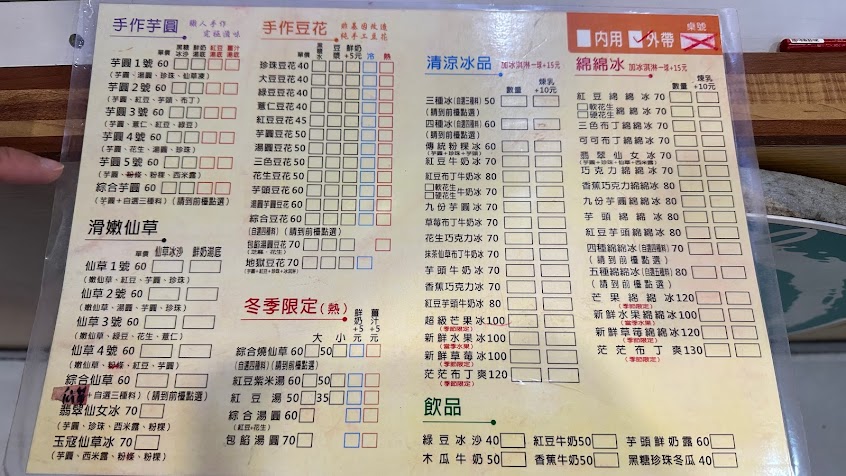 手作芋圓
職人手作
究極滋味
單價
黑糖冰沙
鮮奶湯底
紅豆湯底
薑汁湯底
芋圓1號 60
(芋圓、湯圓、珍珠、仙草凍)
芋圓2號 60
(芋圓、紅豆、芋頭、布丁)
芋圓3號 60
(芋圓、薏仁、紅豆、綠豆)
芋圓4號 60
(芋圓、花生、湯圓、珍珠)
芋圓5號 60
(芋圓、粉條、粉粿、西米露)
綜合芋圓 60
(芋圓+自選三種料)(請到前檯點選)
滑嫩仙草
單價
仙草冰沙
鮮奶湯底
仙草1號 60
(嫩仙草、紅豆、芋圓、珍珠)
仙草2號 60
(嫩仙草、湯圓、芋圓、珍珠)
仙草3號 60
(嫩仙草、綠豆、花生、薏仁)
仙草4號 60
(嫩仙草、粉條、紅豆、芋圓)
綜合仙草 60
+自選三種料)(請到前檯點選)
翡翠仙女冰 70
(芋圓、珍珠、西米露、粉粿)
玉寇仙草冰 70
(芋圓、西米露、粉條、粉粿)
手作豆花
非基因改造
純手工豆花
單價
黑糖水
豆漿
鮮奶+5元
冷
熱
珍珠豆花 40
大豆豆花 40
綠豆豆花 40
薏仁豆花 40
紅豆豆花 45
芋圓豆花 50
湯圓豆花 50
三色豆花 50
花生豆花 50
芋頭豆花 60
湯圓芋圓豆花 60
綜合豆花 60
(自選四種料)(請到前檯點選)
包餡湯圓豆花 70
(芝麻、花生)
地獄豆花 70
(芋圓+紅豆+珍珠+冰淇淋)
冬季限定(熱)
大 小
鮮奶+5元
薑汁+5元
綜合燒仙草 60 50
(自選四種料)(請到前檯點選)
紅豆紫米湯 60 50
紅豆湯 50 35
綜合湯圓 60
(紅豆+花生)
包餡湯圓 70
桌號
內用
外帶
清涼冰品 加冰淇淋一球+15元
數量
煉乳+10元
三種冰(自選三種料) 50
(請到前檯點選)
四種冰(自選四種料) 60
(請到前檯點選)
傳統粉粿冰 60
紅豆牛奶冰 70
紅豆布丁牛奶冰 80
軟花生
硬花生
牛奶冰 70
九份芋圓冰 70
草莓布丁牛奶冰 70
花生巧克力冰 70
抹茶仙草布丁牛奶冰 70
芋頭牛奶冰 70
香蕉巧克力冰 70
紅豆芋頭牛奶冰 80
超級芒果冰 100
(季節限定)
新鮮水果冰 100
(當季水果)
新鮮草莓冰 100
(季節限定)
茫茫布丁爽 120
綿綿冰 加冰淇淋一球+15元
數量
煉乳+10元
紅豆綿綿冰 70
軟花生
硬花生
綿綿冰 70
三色布丁綿綿冰 70
可可布丁綿綿冰 70
翡翠仙女冰 70
巧克力綿綿冰 70
香蕉巧克力綿綿冰 80
九份芋圓綿綿冰 80
芋頭綿綿冰 80
紅豆芋頭綿綿冰 80
四種綿綿冰(自選四種料) 70
(請到前檯點選)
五種綿綿冰(自選五種料) 80
(請到前檯點選)
芒果綿綿冰 120
(季節限定)
新鮮水果綿綿冰 100
(當季水果)
新鮮草莓綿綿冰 120
(季節限定)
茫茫布丁爽 130
飲品
綠豆冰沙 40 紅豆牛奶 50 芋頭鮮奶露 60
木瓜牛奶 50 香蕉牛奶 50 黑糖珍珠冬瓜 40